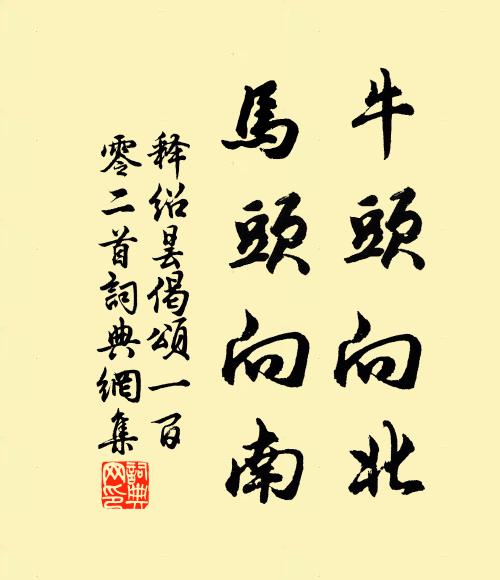 牛頭向北
馬頭向南
釋紹曇偈頌一百
零二首詞典網集
詞典
网印